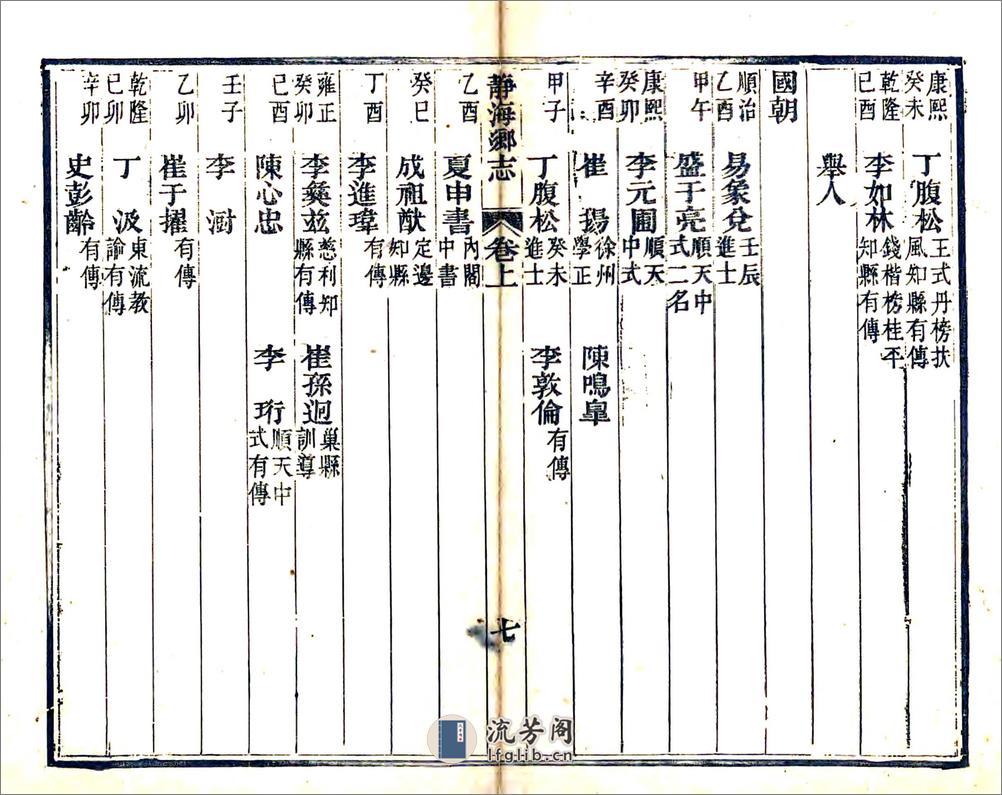 康熙癸未　丁腹松　王式丹榜扶風知縣有傳
乾隆己酉　李如林　錢楷榜桂平知縣有傳
舉人
國朝
順治乙酉　易象兌　壬辰進士
甲午　盛于亮　順天中式二名
康熙癸卯　李元圃　順天中式
辛酉　崔鍚　徐州學正　陳鳴臯
甲子　丁腹松　癸未進士　李敦倫　有傳
靜海鄉志　卷上　七
乙酉　夏申書　內閣中書
癸巳　成祖猷　定邊知縣
丁酉　李進瑋　有傳
雍正癸卯　李彝茲　慈利知縣有傳　崔孫迥　巢縣訓導
己酉　陳心忠　李珩　順天中式有傳
壬子　李澍
乙卯　崔于擢　有傳
乾隆己卯　丁汲　東流教諭有傳
辛卯　史彭齡　有傳
流芳阁
lfglib.cn